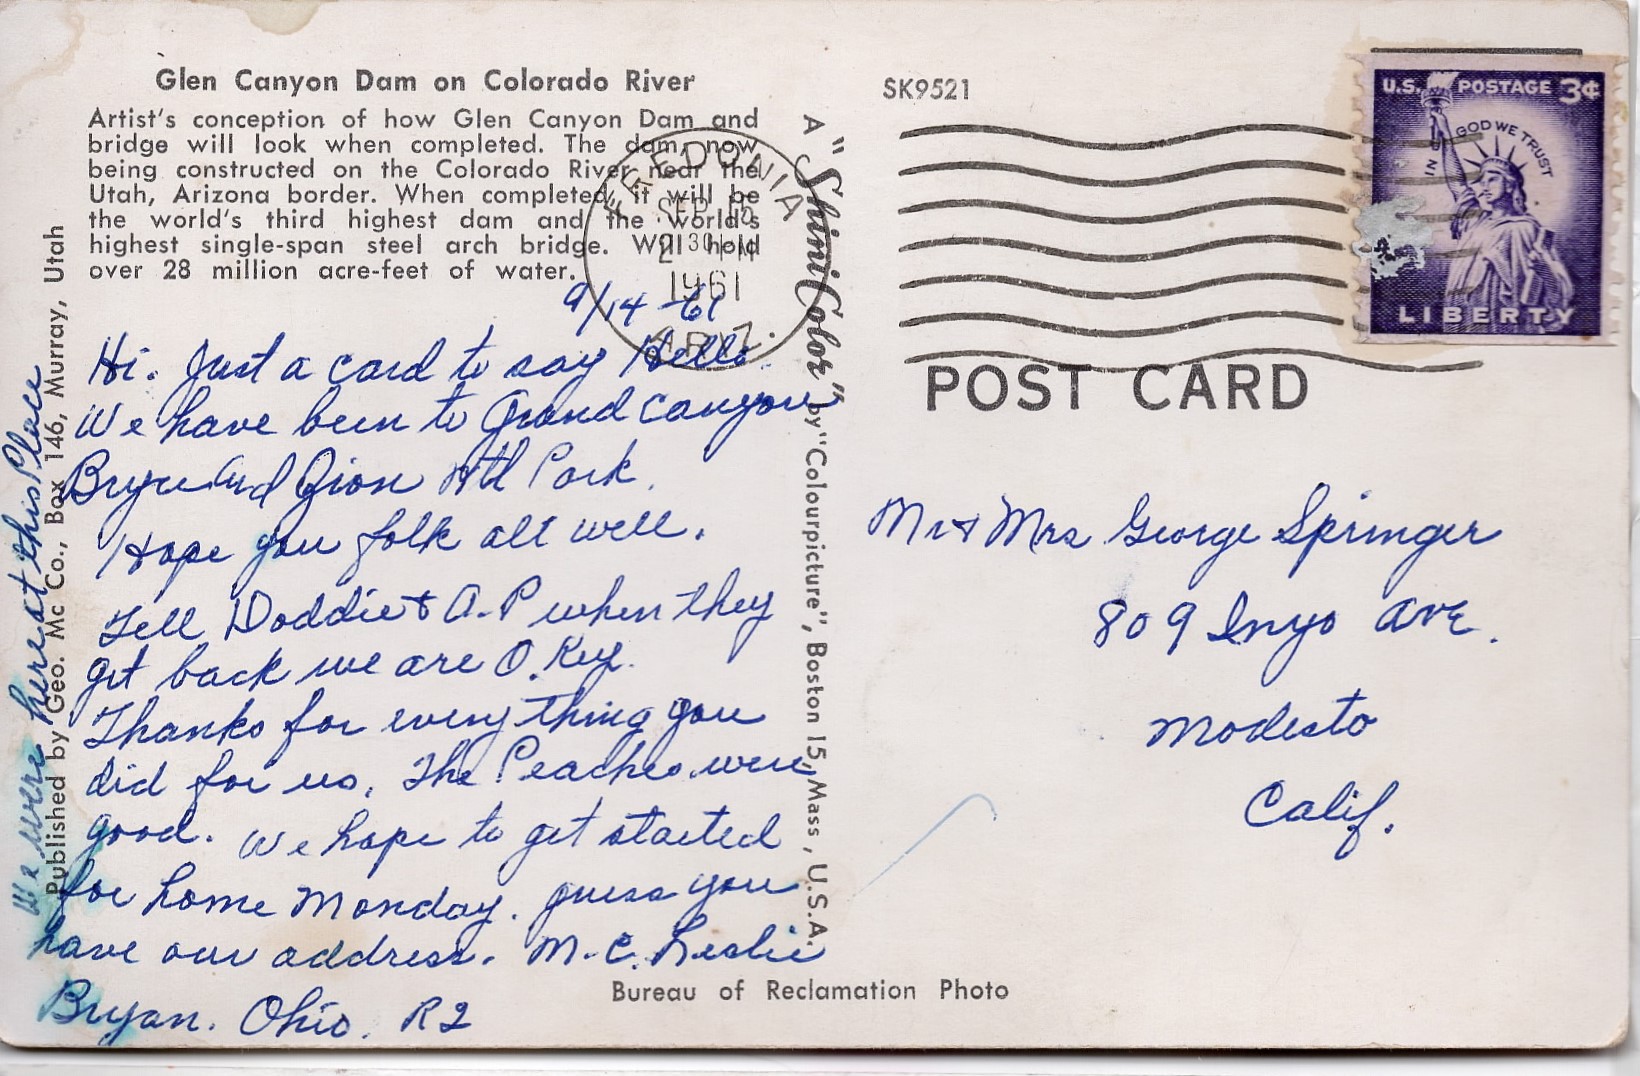 Glen Canyon Dam on Colorado River
Artist's conception of how Glen Canyon Dam and
bridge will look when completed. The dam, now
being constructed on the Colorado River near the
Utah, Arizona border. When completed, it will be
the world's third highest dam and the world's
highest single-span steel arch bridge. Will hold
over 28 million acre-feet of water.
9/14-61
Hi. Just a card to say Hello.
We have been to Grand canyon
Bryce and Zion Ntl Park.
Hope you folk all well.
Tell Doddie & A-P when they
get back we are O.Key.
Thanks for every thing you
did for us. The Peaches were
good. We hope to get started
for home Monday. guess you
have our address. M.C. Leslie
Bryan. Ohio. R2
We were here at this Place
Published by Geo. Mc Co., Box 146, Murray, Utah
FREDONIA
SEP 15
2 30 PM
1961
ARIZ.
A "ShiniColor" by "Colourpicture", Boston 15, Mass, U.S.A.
SK9521
U.S. POSTAGE 3¢
IN GOD WE TRUST
LIBERTY
POST CARD
Mr & Mrs George Springer
809 Inyo Ave.
Modesto
Calif.
Bureau of Reclamation Photo